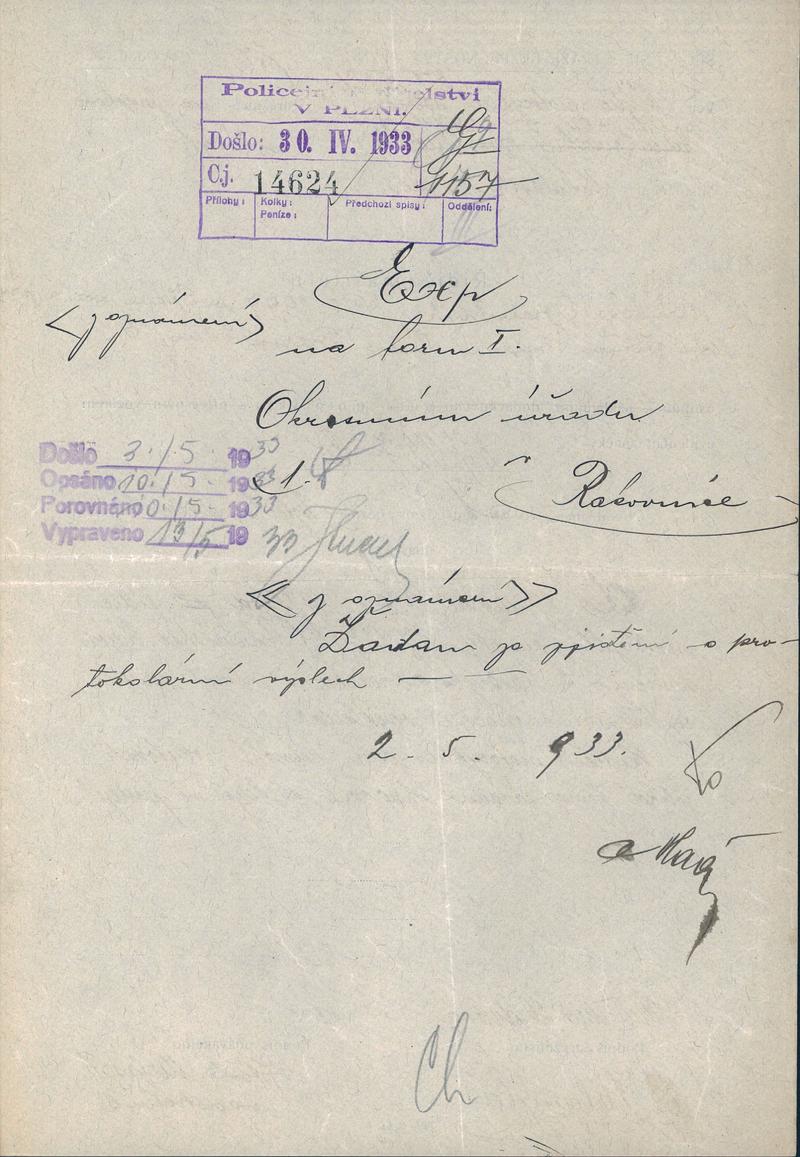 Policejní ředitelství
V PLZNI.
Došlo: 30. IV. 1933
Č.j. 14624 1157
Přílohy: Kolky: Peníze: Předchozí spisy: Oddělení:
Exp
<z oznámení>
na form I.
Okresnímu úřadu
Došlo 3./5. 1933
Opsáno 10./5. 1933 1.
v Rakovníce
Porovnáno 10./5. 1933
Vypraveno 13/5 1933
<< z oznámení >>
Žádám za zjištění a pro-
tokolární výslech —
2. 5. 933.
Ch